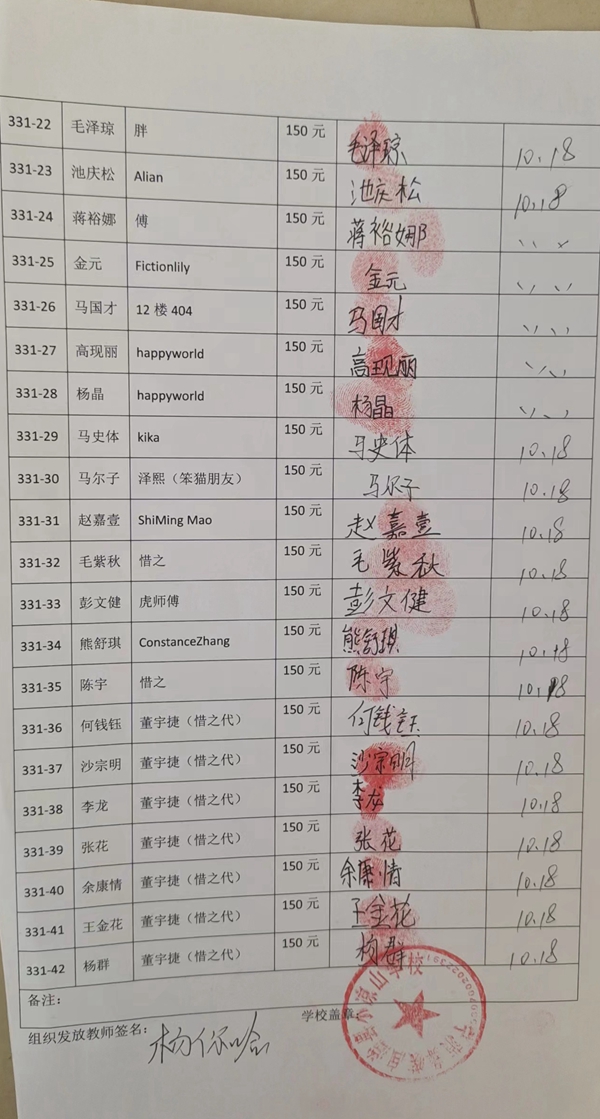 331-22 毛泽琼 胖 150 元 毛泽琼 10.18
331-23 池庆松 Alian 150 元 池庆松 10.18
331-24 蒋裕娜 傅 150 元 蒋裕娜
331-25 金元 Fictionlily 150 元 金元
331-26 马国才 12 楼 404 150 元 马国才
331-27 高现丽 happyworld 150 元 高现丽
331-28 杨晶 happyworld 150 元 杨晶
331-29 马史体 kika 150 元 马史体 10.18
331-30 马尔子 泽熙（笨猫朋友） 150 元 马尔子 10.18
331-31 赵嘉壹 ShiMing Mao 150 元 赵嘉壹 10.18
331-32 毛紫秋 惜之 150 元 毛紫秋 10.18
331-33 彭文健 虎师傅 150 元 彭文健 10.18
331-34 熊舒琪 ConstanceZhang 150 元 熊舒琪 10.18
331-35 陈宇 惜之 150 元 陈宇 10.18
331-36 何钱钰 董宇捷（惜之代） 150 元 何钱钰 10.18
331-37 沙宗明 董宇捷（惜之代） 150 元 沙宗明 10.18
331-38 李龙 董宇捷（惜之代） 150 元 李龙 10.18
331-39 张花 董宇捷（惜之代） 150 元 张花 10.18
331-40 余康情 董宇捷（惜之代） 150 元 余康情 10.18
331-41 王金花 董宇捷（惜之代） 150 元 王金花 10.18
331-42 杨群 董宇捷（惜之代） 150 元 杨群 10.18
备注：
学校盖章：
组织发放教师签名：